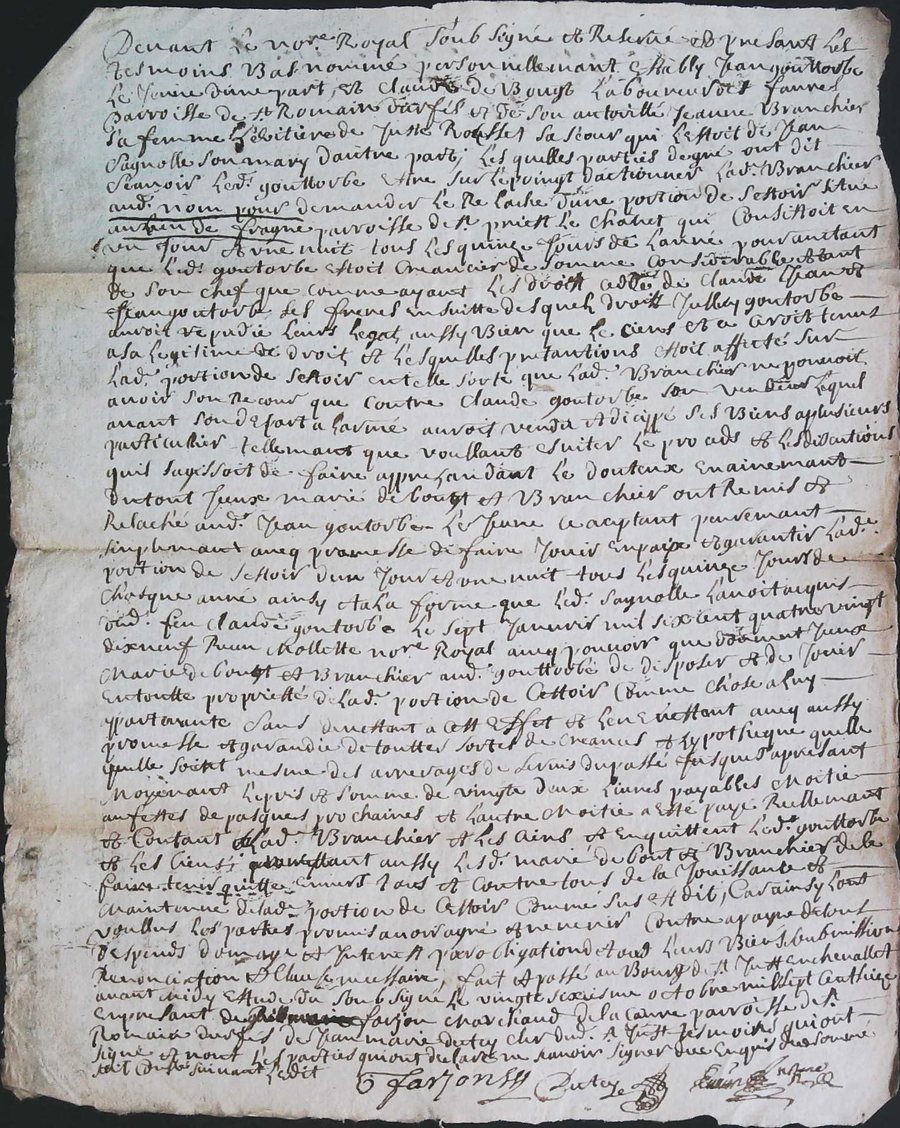 Devant Le nore Royal Soub signé et Reservé et presant Les
tesmoins Bas nommé personnellemant estably Jean gouttorbe
Le Jeune dune part, et Claude de Bougt Laboureur
parroisse de St Romain durfé et de son autorité Jeanne Branchier
sa femme de Juste sa sœur qui Lestoit de Jean
Sagnolle son mary dautre part, Les quelles parties de gré ont dit
scavoir Led. gouttorbe estre sur le poingt dactionner Lad. Branchier
aud. nom pour demander Le Relache dune portion de settoir situé
parroisse de St priest Le Chanet qui Consistoit en
un Jour et une nuit tous Les quinze Jours de Lanné pour autant
que Led. goutorbe estoit Creancier de somme Considerable tant
de son chef que comme ayant Les droit cedés de Claude
et Jean goutorbe ses freres en suitte des quels droits goutorbe
auroit repudié leurs Legat aussy Bien que le siens et
a sa Legitime de droit et Les quelles pretantions estoit affecté sur
Lad. portion de settoir en telle sorte que Lad. Branchier ne pouvoit
avoir son Recour que contre Claude goutorbe son vendeur Lequel
avant son depart a Larmé auroit vendu et dicippé ses Biens a plusieurs
particullier tellemant que voullant esviter Le procds et Les
quis sagissoit de faire apprehandant Le douteux
du tout Jceux marié de bougt et Branchier ont Remis et
Relaché aud. Jean goutorbe Le Jeune ce aceptant puremant
simplemant avecq promesse de faire Jouir en paix et garantir Lad.
portion de settoir dun Jour et une nuit tous Les quinze Jours de
chasque anné ainsy et a La forme que Led. Sagnolle Lavoit acquis
dud. feu Claude goutorbe Le sept Janvier mil six cent quatre vingt
dix neuf Reçeu Mollette nore Royal avecq pouvoir que donnent Jceux
Marié de bougt et Branchier aud. gouttorbe de disposer et de Jouir
En toutte proprieté de Lad. portion de cettoir Comme chose a Luy
appartenante sans demettent a cest Effet et Len envettent avecq aussy
promesse et garandie de touttes sortes de Creances et hypothecque quelle
quelle soient mesme des arrerages de servis du passé Jusques a presant
Moyenant Le pris et somme de vingte deux Livres payables Moitié
au festes de pasques prochaines et Lautre Moitié a esté payé Reellemant
et Contant a Lad. Branchier et Les siens et En quittent Led. gouttorbe
et Les siens, aussy Lesd. marié de bougt et Branchier de le
faire tenir quitte Envers tous et contre tous de la Jouissante et
Maintenue de Lad. portion de cettoir Comme sus est dit, Car ainsy Lont
voullus Les parties promis avoir agré et ne venir Contre a payne de tous
despends domage et Interest par obligation de tous Leurs Biens soubmission
Renonciation et Clause necessaire, fait et passé au Bourg de St Just en chevallet
avant midy Estude du soub signé Le vingte sixiesme octobre mil sept cent
En presant de farjon Marchand de la parroisse de St
Romain durfé de Jean marie dutey clr dud. St Just tesmoins qui ont
signé et non Les parties qui ont declare ne scavoir signer de ce Enquis de sommé
suivant Ledit
farjon Dutey